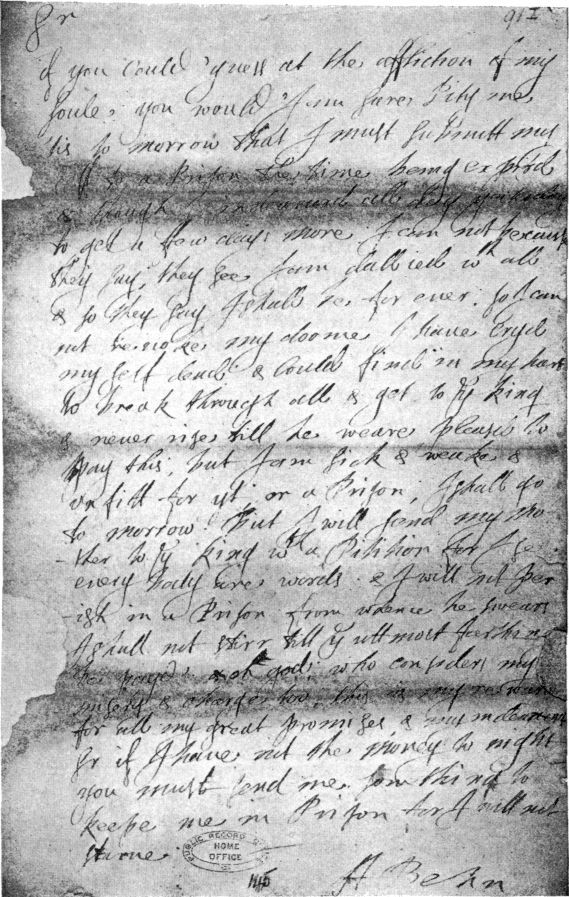 91 I
Sr
if you could guess at the affliction of my
soule, you would I am sure Pity me
'tis to morrow that I must submitt my
self to a Prison the time being expird
& though I indeauerd all day yesterday
to get a ffew days more I can not because
they say they see I am dallied wth all
& so they say I shall be for euer: so I can
not reuoke my doome I haue cryd
my self dead & could find in my hart
to break through all & get to ye king
& neuer rise till he weare pleasd to
pay this; but I am sick & weake &
vnfitt for yt; or a Prison; I shall go
to morrow: But I will send my mo
ther to ye king wth a Pitition for I see
euery body are words: & I will not per
ish in a Prison from whence he swears
I shall not stirr till ye uttmost farthing
be payd: & oh god; who considers my
misery & charge too, this is my reward
for all my great promises & my indeauers
Sr if I haue not the money to night
you must send me som thing to
keepe me in Prison for I will not
starue
A Behn
PUBLIC RECORD OFFICE
HOME
OFFICE